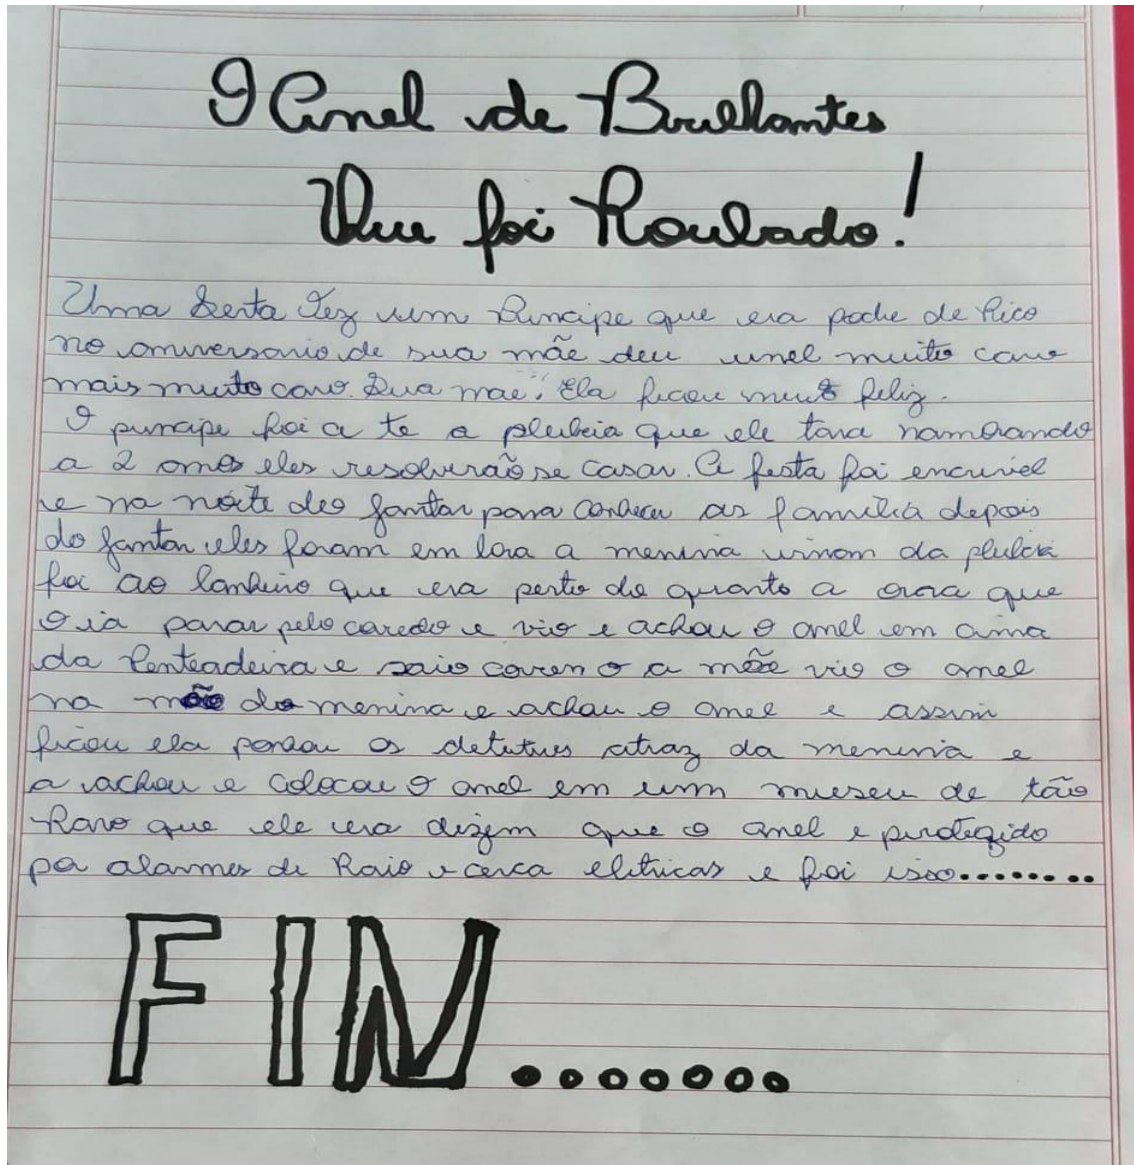 O Anel de Brilhantes
Que foi Roubado!
Uma Serta Vez um Principe que era podre de Rico
no aniversario de sua mãe deu unel muito caro
mais muito caro. Sua mae. Ela ficou muito feliz.
O principe foi a te a plebeia que ele tava namorando
a 2 anos eles resolverão se casar. A festa foi encrivel
e na noite do jantar para conhecer as familia depois
do jantar eles foram em lora a menina da
foi ao banheiro que era perto do quanto a que
ia parar pelo e vio e achou o anel em cima
da Penteadeira e saio coren o a mãe vio o anel
na mão do menina e achou o anel e assim
ficou ela os atraz da menina e
a achou e colocou o anel em um museu de tão
Raro que ele era dizem que o anel e protegido
por alarmes de Raio e cerca eletricas e foi isso........
FIN.......